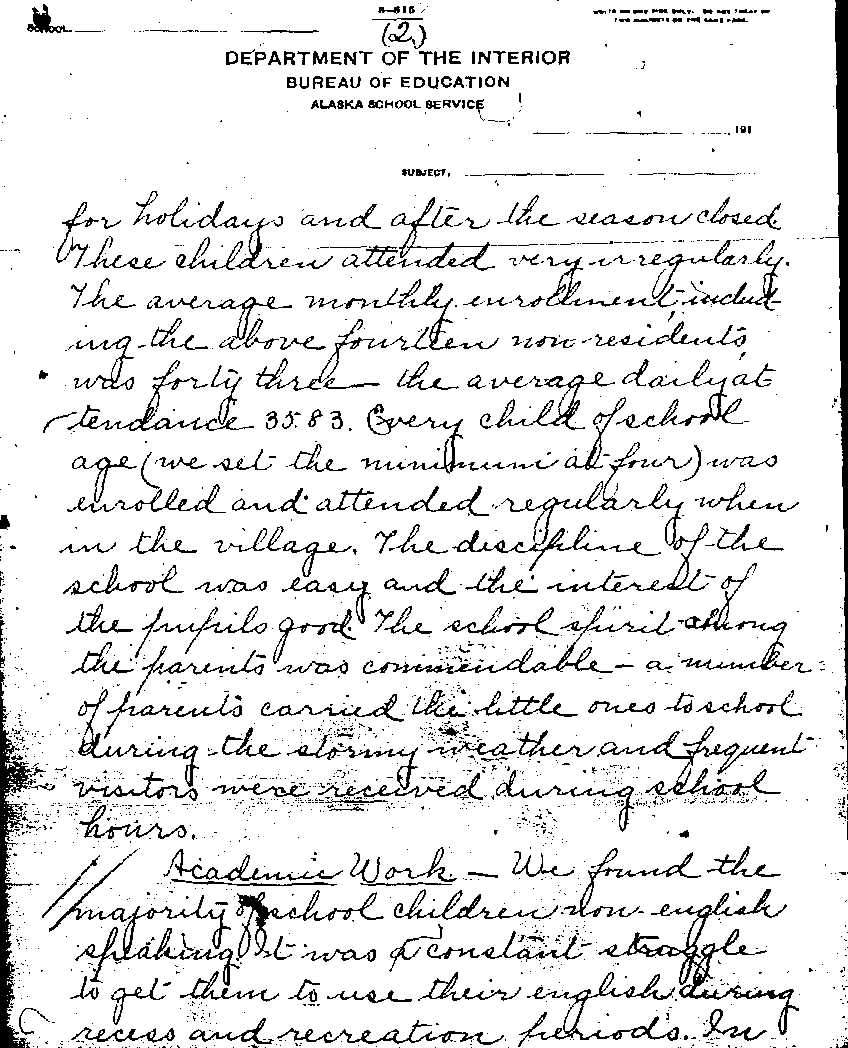 SCHOOL
(2.)
DEPARTMENT OF THE INTERIOR
BUREAU OF EDUCATION
ALASKA SCHOOL SERVICE
191
SUBJECT,
for holidays and after the season closed.
These children attended very irregularly.
The average monthly enrollment, includ-
ing the above fourteen non-residents
was forty three – the average daily at
tendance 35.83. Every child of school
age (we set the minimum at four) was
enrolled and attended regularly when
in the village. The discipline of the
school was easy and the interest of
the pupils good. The school spirit among
the parents was commendable – a number
of parents carried the little ones to school
during the stormy weather and frequent
visitors were received during school
hours.
Academic Work – We found the
majority of school children non-english
speaking. It was a constant struggle
to get them to use their english during
recess and recreation periods. In